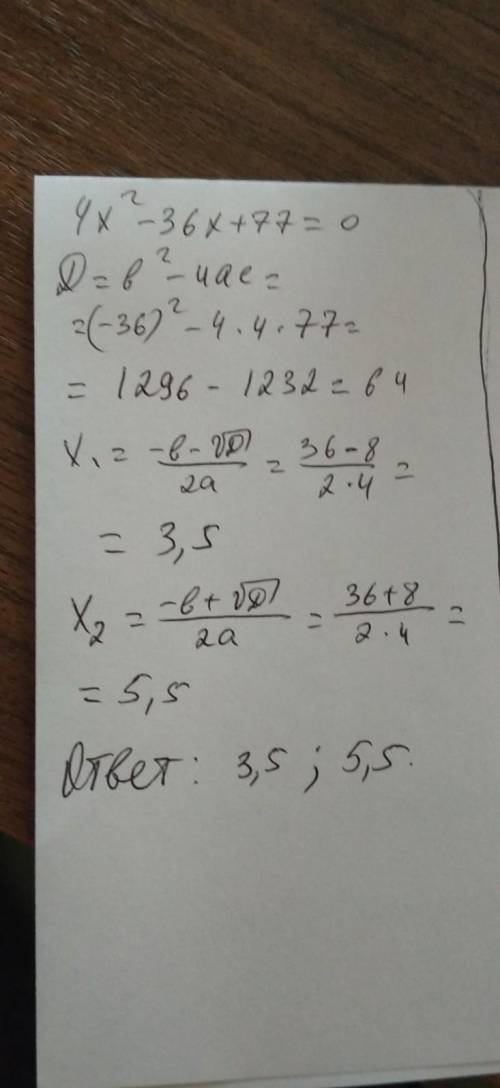 4x² - 36x + 77 = 0
D = в² - 4ac =
= (-36)² - 4 · 4 · 77 =
= 1296 - 1232 = 64
x₁ = (-в - √D)/(2a) = (36 - 8)/(2 · 4) =
= 3,5
x₂ = (-в + √D)/(2a) = (36 + 8)/(2 · 4) =
= 5,5
Ответ: 3,5 ; 5,5.